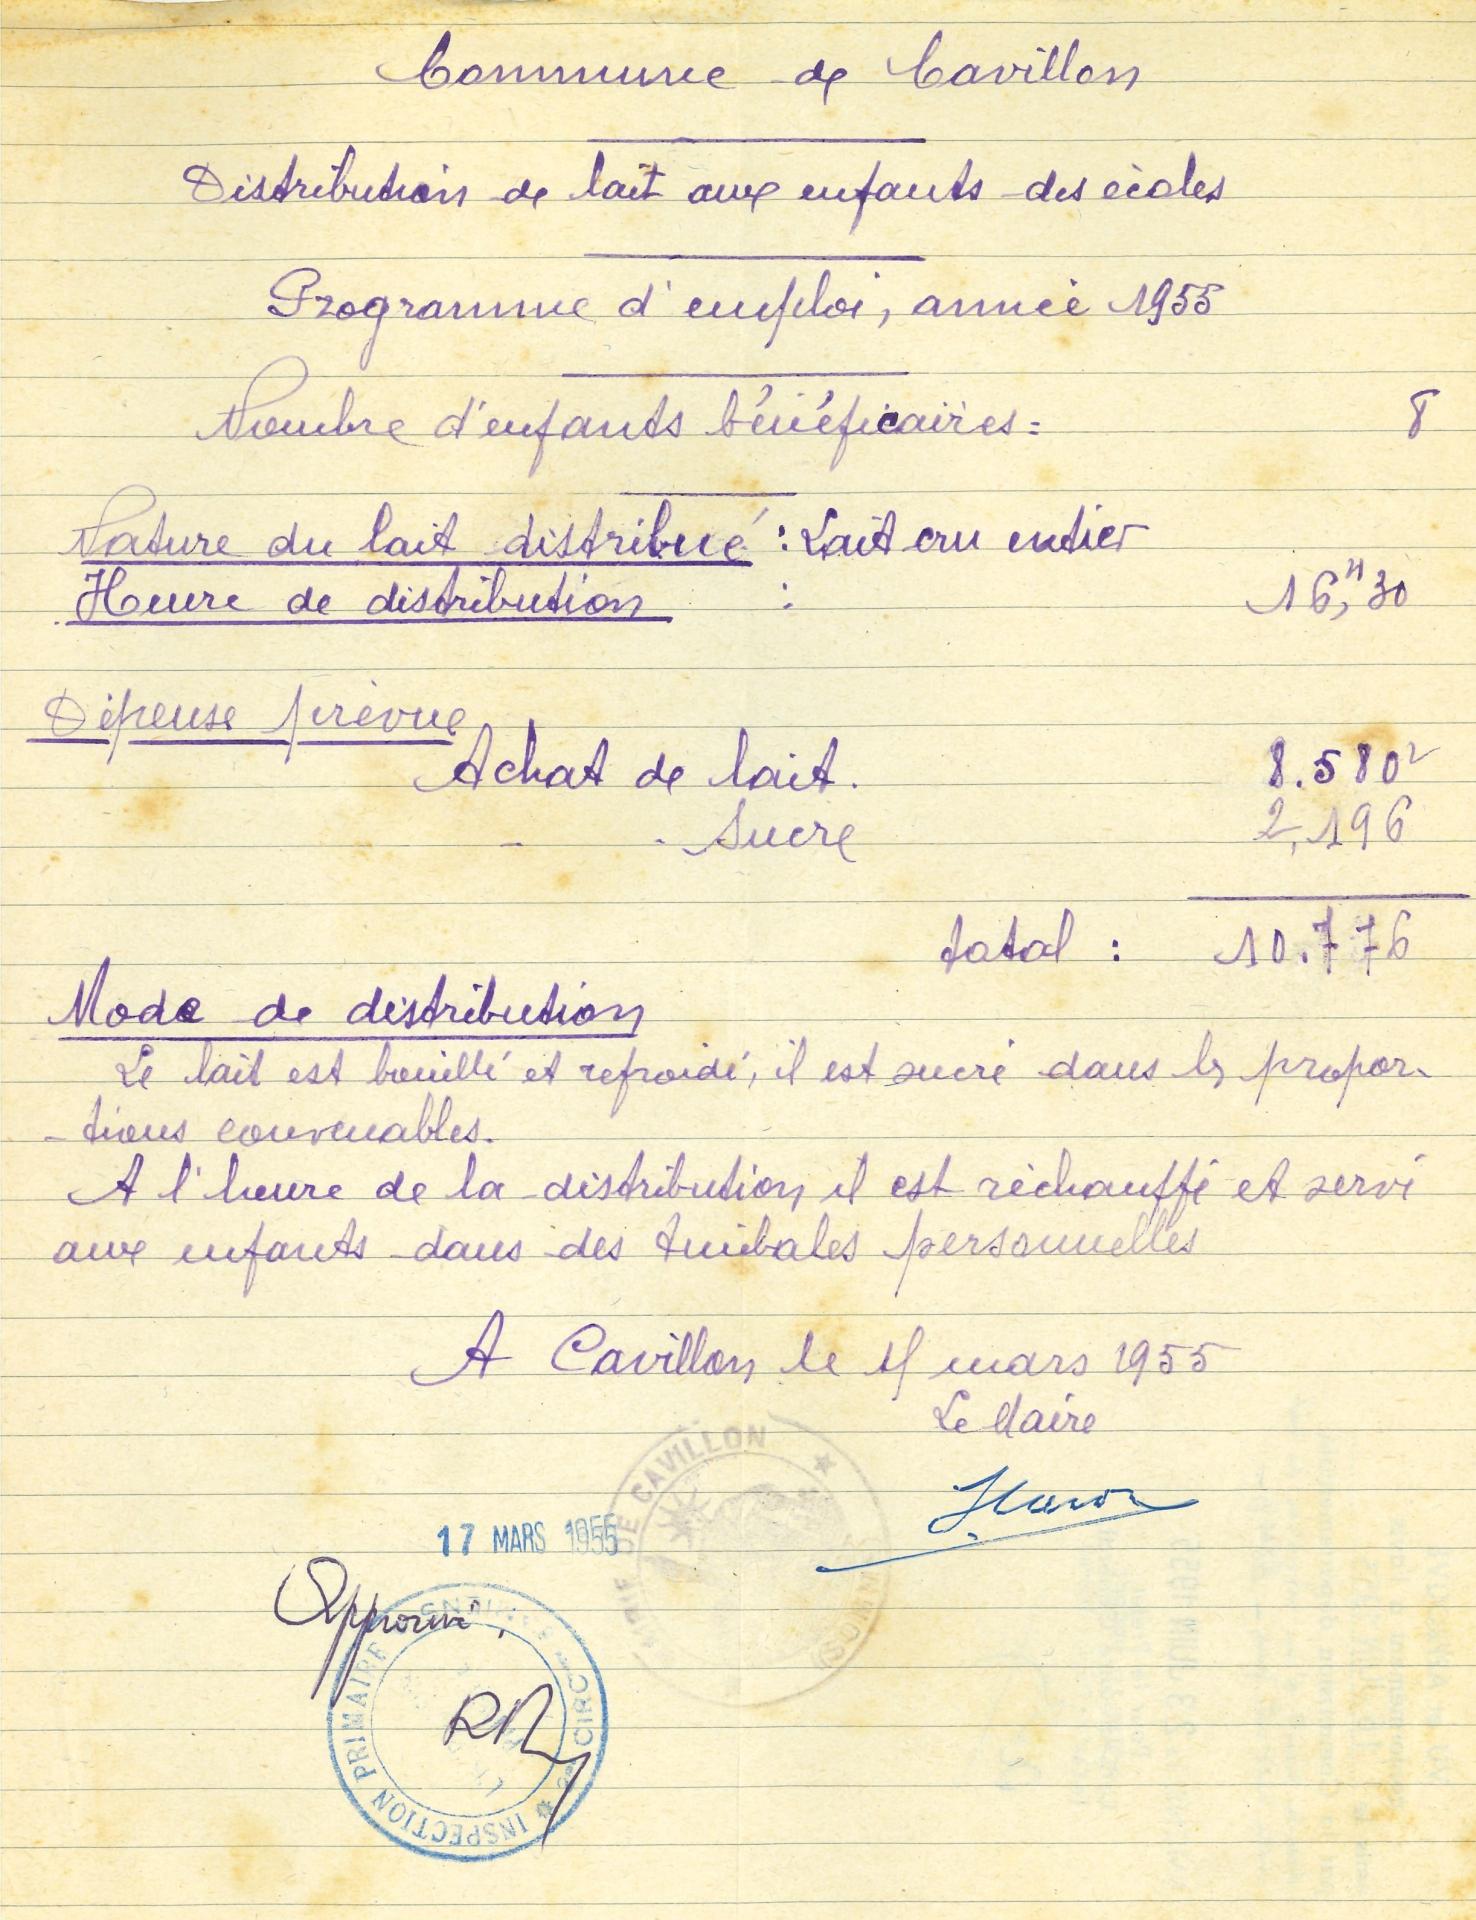 Commune de Cavillon
Distribution de lait aux enfants des écoles
Programme d'emploi, année 1955
Nombre d'enfants bénéficaires = 8
Nature du lait distribué : Lait cru entier
Heure de distribution : 16,H30
Dépense prévue
Achat de lait. 8.580
- - Sucre 2.196
total : 10.776
Mode de distribution
Le lait est bouilli et refroidi, il est sucré dans les propor-
-tions convenables.
A l'heure de la distribution il est réchauffé et servi
aux enfants dans des timbales personnelles
A Cavillon le 11 mars 1955
Le Maire
MAIRIE DE CAVILLON ★ (SOMME)
17 MARS 1955
Approuvé,
INSPECTION PRIMAIRE AMIENS 2e CIRC